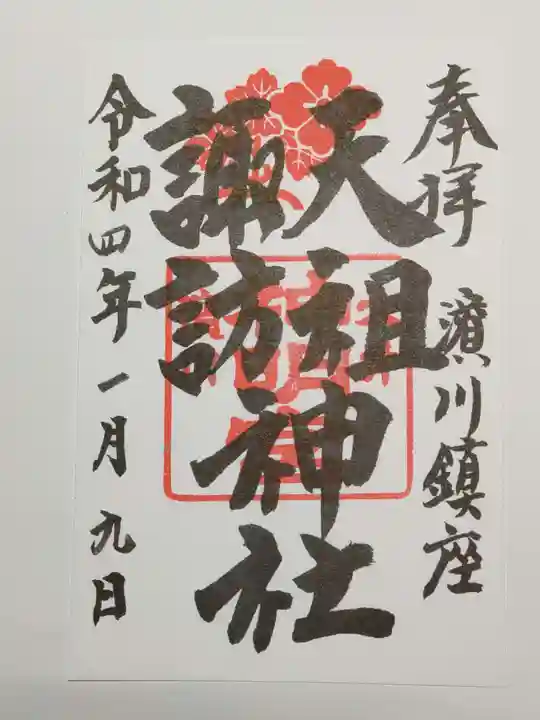 奉拝 濱川鎮座
天祖
諏訪
神社
令和四年一月九日